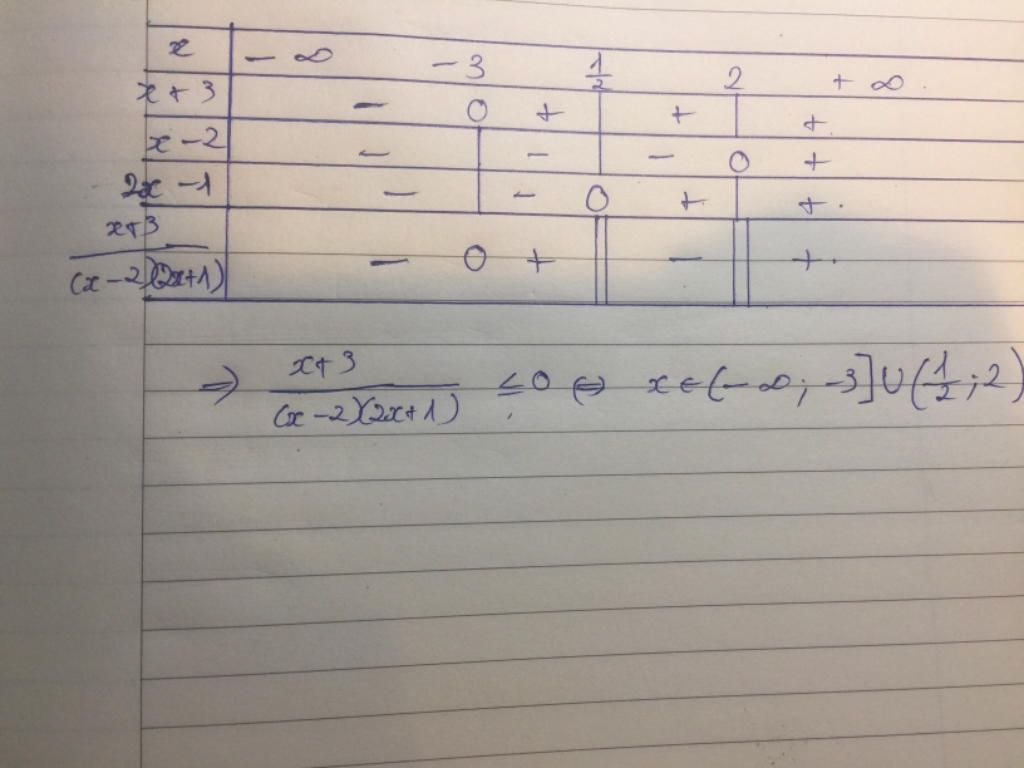 x - ∞ - 3 1/2 2 + ∞.
x + 3 - 0 + + +
x - 2 - - - 0 +
2x - 1 - - 0 + +.
x+3/(x-2)(2x+1) - 0 + || - || +.
⇒ x+3/(x-2)(2x+1) ≤ 0 ⇔ x ∈ (- ∞; -3] ∪ (1/2; 2)